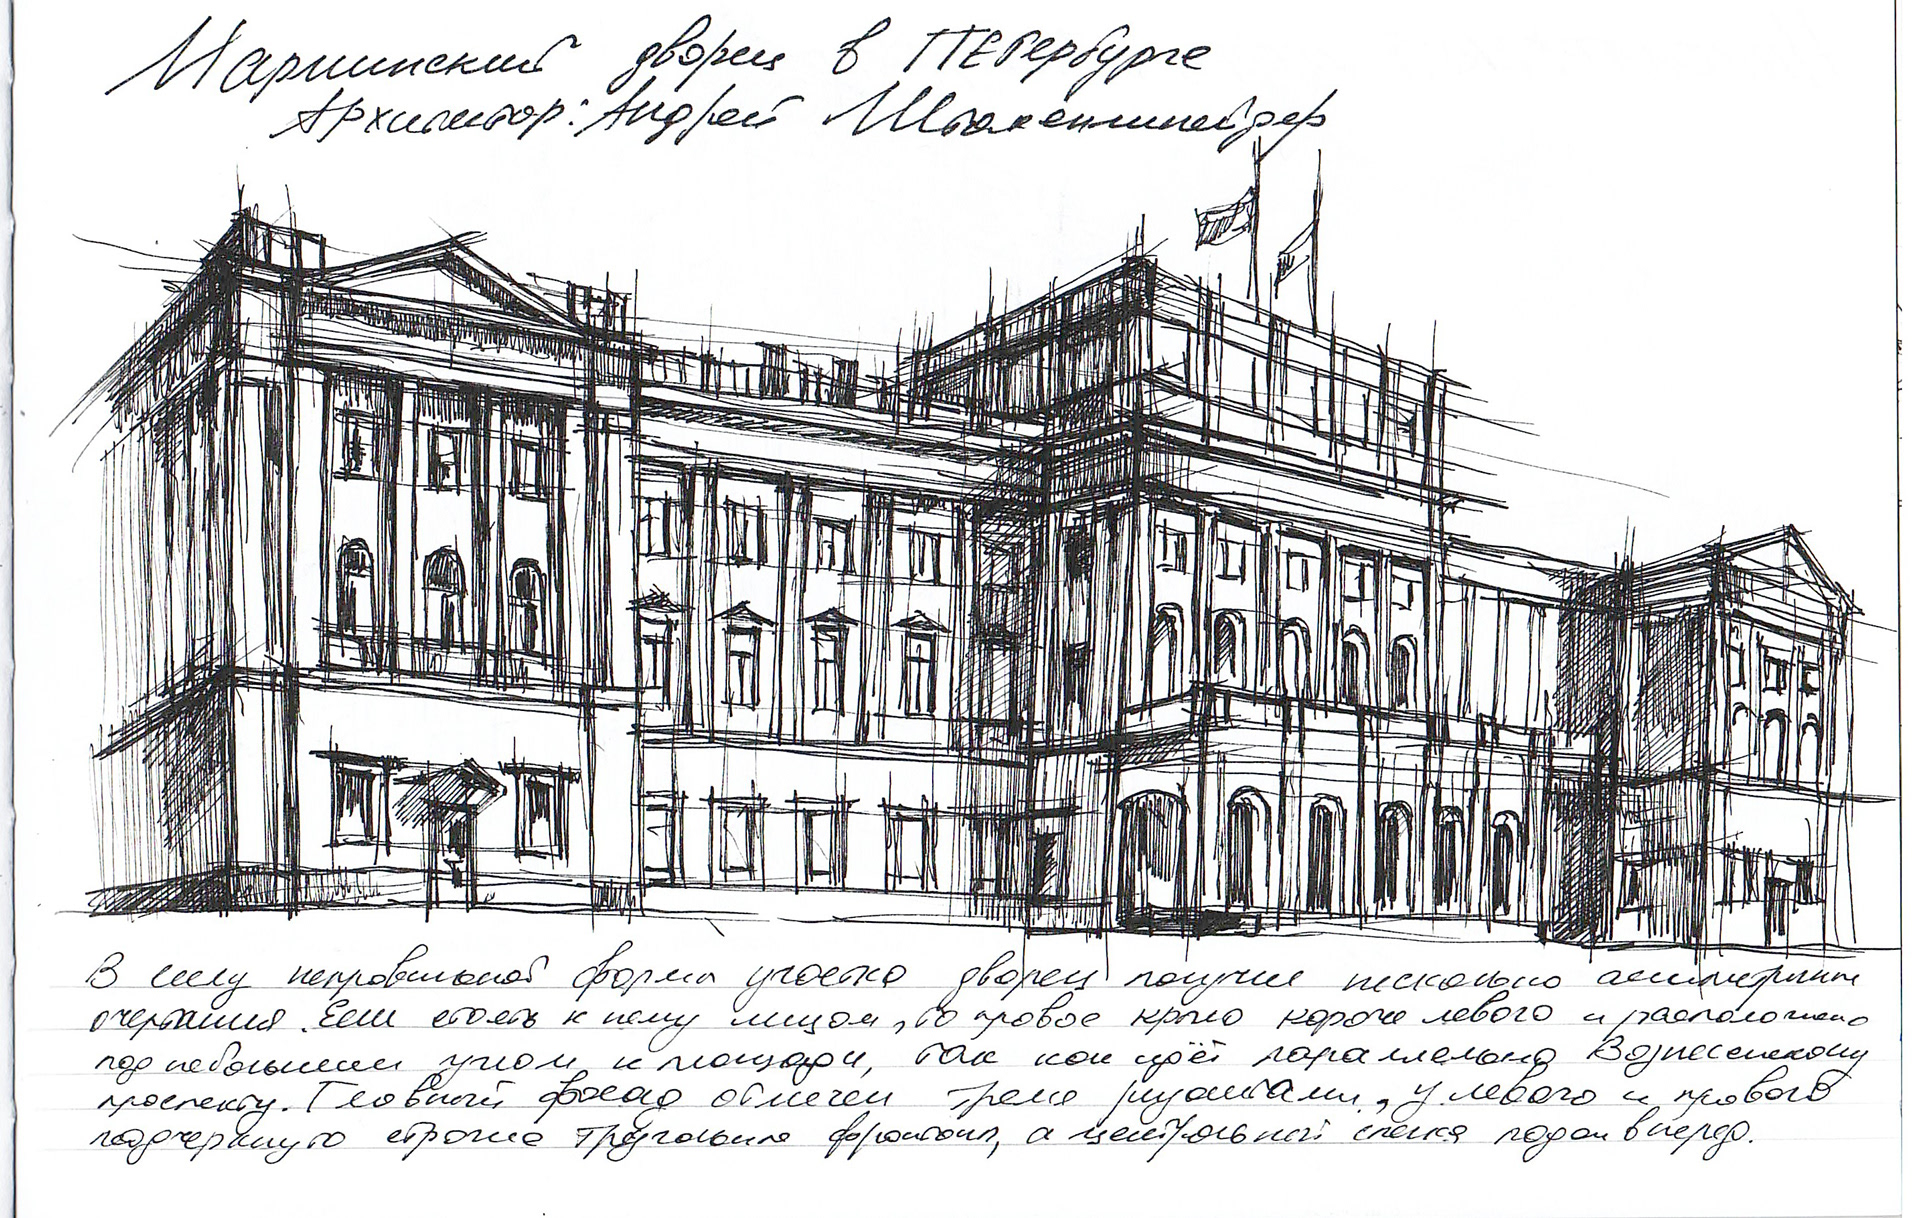 Мариинский дворец в Петербурге
Архитектор: Андрей Штакеншнейдер
В силу неправильной формы участка дворец получил несколько асимметричные
очертания. Если стоять к нему лицом, то правое крыло короче левого и расположено
под небольшим углом к площади, так как идёт параллельно Вознесенскому
проспекту. Главный фасад отмечен тремя ризалитами, у левого и правого
подчеркнуто строгие треугольные фронтоны, а центральный слегка подан вперед.